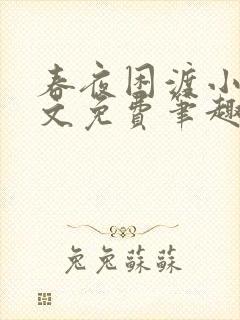 春夜困渡小
文免费笔趣
兔兔蘇蘇